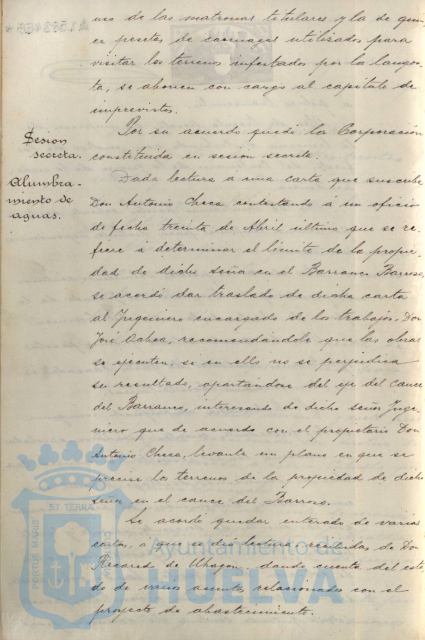 nes de las matronas titulares y la de quin-
ce pesetas, de carruajes utilizados para
visitar los terrenos infestados por la langos-
ta, se abonen con cargo al capítulo de
imprevistos.
Sesion
secreta.
Por su acuerdo quedó la Corporación
constituida en sesión secreta.
Alumbra-
miento de
aguas.
Dada lectura a una carta que suscribe
Don Antonio Checa contestando á un oficio
de fecha treinta de Abril último que se re-
fiere á determinar el límite de la propie-
dad de dicho señor en el Barranco Barroso,
se acordó dar traslado de dicha carta
al Ingeniero encargado de los trabajos, Don
José Ochoa, recomendándole que las obras
se ejecuten, si en ello no se perjudica
su resultado, apartándose del eje del cauce
del Barranco, interesando de dicho señor Inge-
niero que de acuerdo con el propietario Don
Antonio Checa, levante un plano en que se
precise los terrenos de la propiedad de dicho
señor en el cauce del Barroso.
Se acordó quedar enterado de varias
cartas, á que se dió lectura, recibidas de Don
Ricardo de Uhagon, dando cuenta del esta-
do de varios asuntos relacionados con el
proyecto de abastecimiento.
Ayuntamiento de
HUELVA
PORTUS MARIS
ET TERRA